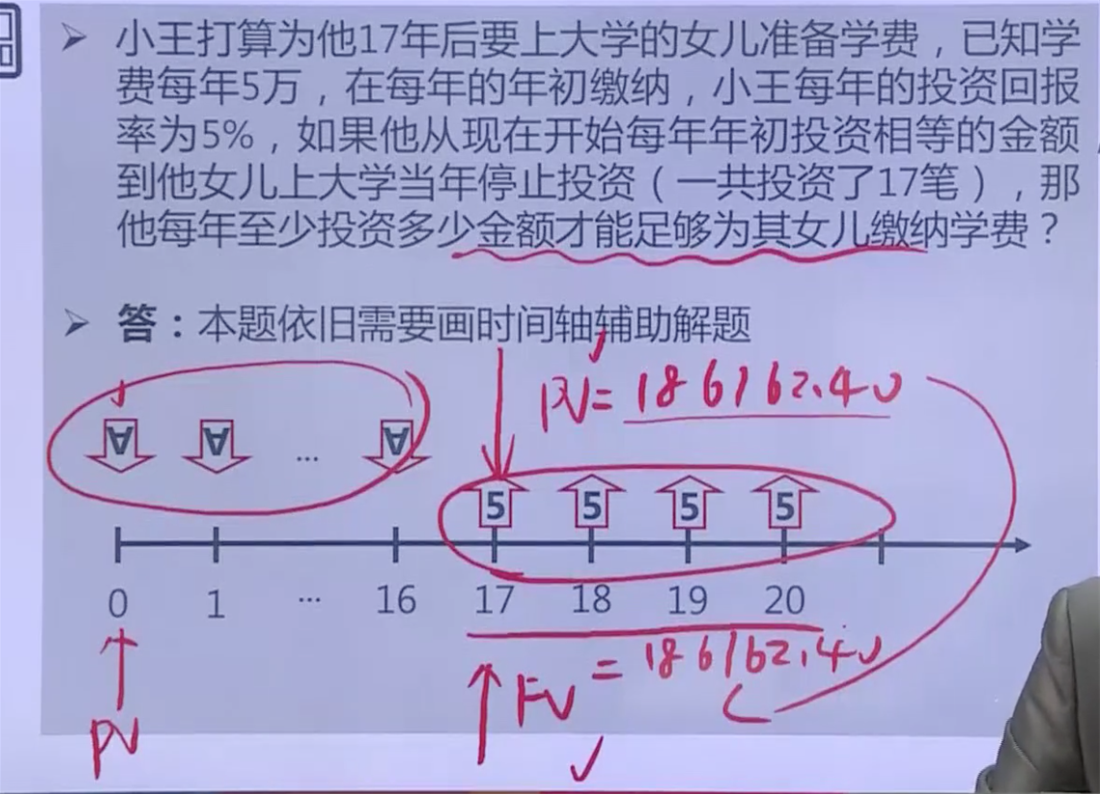 ➢ 小王打算为他17年后要上大学的女儿准备学费，已知学
费每年5万，在每年的年初缴纳，小王每年的投资回报
率为5%，如果他从现在开始每年年初投资相等的金额，
到他女儿上大学当年停止投资（一共投资了17笔），那
他每年至少投资多少金额才能足够为其女儿缴纳学费？
➢ 答：本题依旧需要画时间轴辅助解题
PV= 186162.40
A A ... A
5 5 5 5
0 1 ... 16 17 18 19 20
PV FV = 186162.40